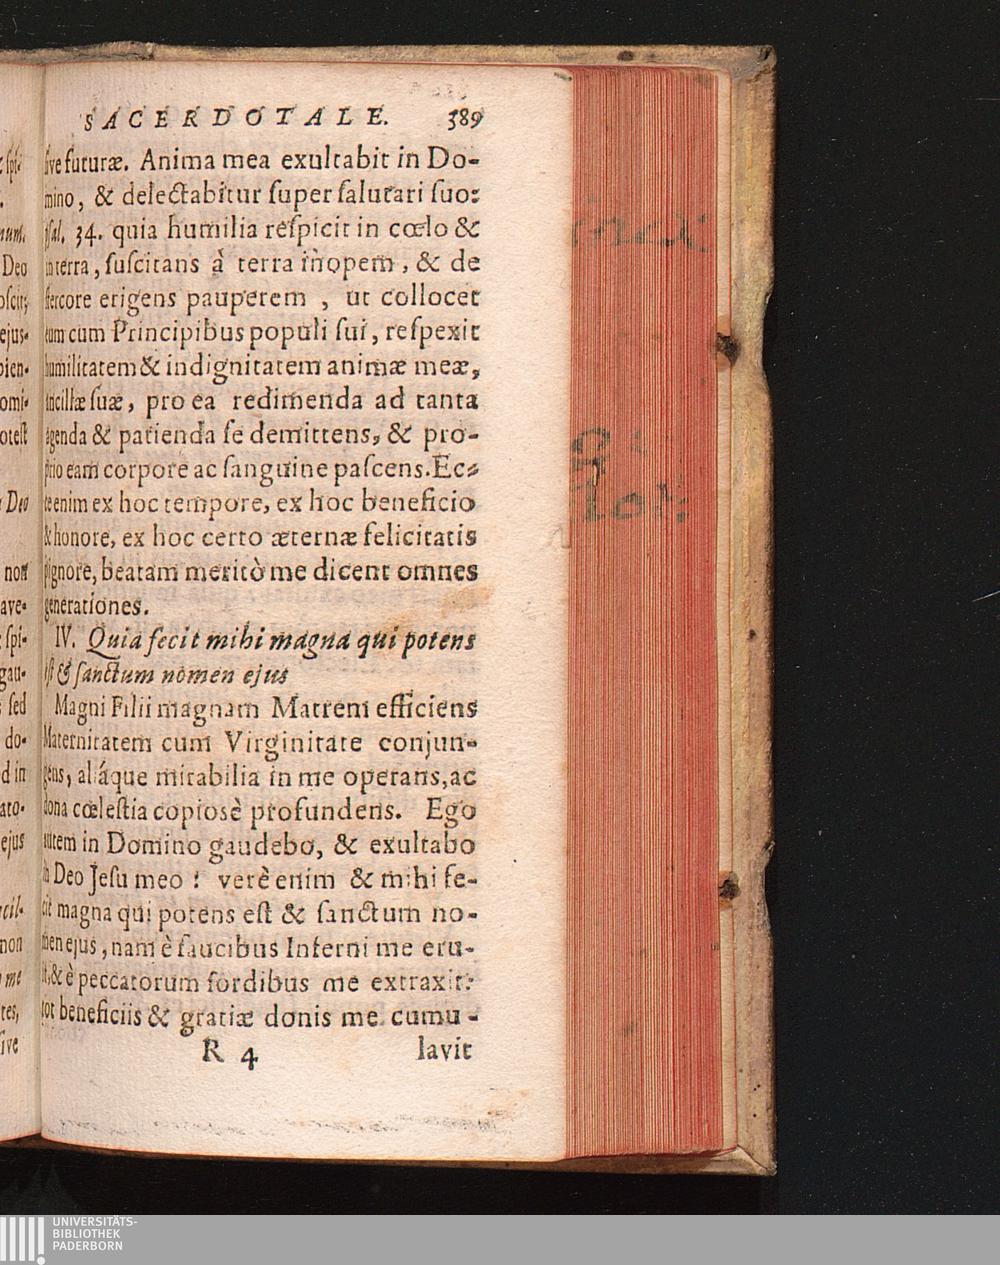 SACERDOTALE. 389
sive futuræ. Anima mea exultabit in Do-
mino, & delectabitur super salutari suo:
psal. 34. quia humilia respicit in cœlo &
in terra, suscitans à terra inopem, & de
stercore erigens pauperem, ut collocet
eum cum Principibus populi sui, respexit
humilitatem & indignitatem animæ meæ,
ancillæ suæ, pro ea redimenda ad tanta
agenda & patienda se demittens, & pro-
prio eam corpore ac sanguine pascens. Ec-
ce enim ex hoc tempore, ex hoc beneficio
& honore, ex hoc certo æternæ felicitatis
pignore, beatam meritò me dicent omnes
generationes.
IV. Quia fecit mihi magna qui potens
est & sanctum nomen ejus
Magni Filii magnam Matrem efficiens
Maternitatem cum Virginitate conjun-
gens, aliáque mirabilia in me operans, ac
dona cœlestia copiosè profundens. Ego
autem in Domino gaudebo, & exultabo
in Deo Jesu meo: verè enim & mihi fe-
cit magna qui potens est & sanctum no-
men ejus, nam è faucibus Inferni me eru-
it, & è peccatorum sordibus me extraxit:
tot beneficiis & gratiæ donis me cumu-
R 4 lavit
UNIVERSITÄTS-
BIBLIOTHEK
PADERBORN